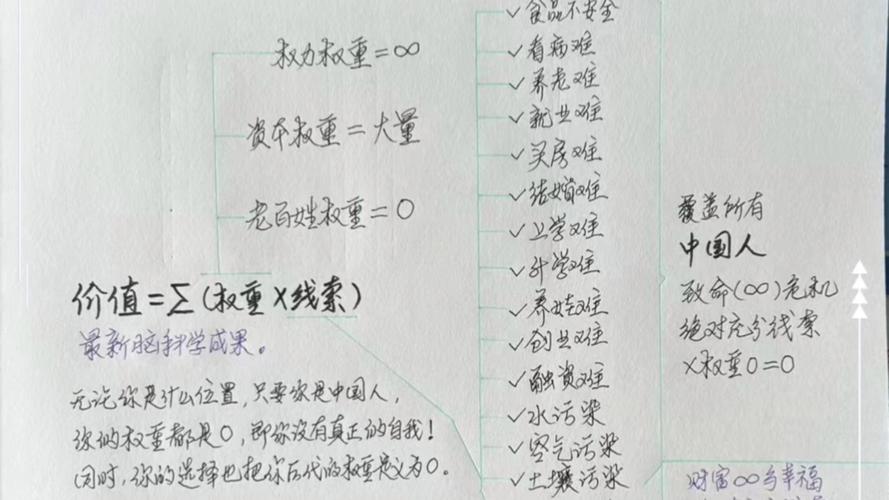 权力权重=∞
资本权重=大量
老百姓权重=0
价值=Σ(权重×线索)
最新脑科学成果。
无论你是什么位置,只要你是中国人,
你的权重都是0,即你没有真正的自我!
同时,你的选择也把你后代的权重定义为0。
✓食品不安全
✓看病难
✓养老难
✓就业难
✓买房难
✓结婚难
✓上学难
✓升学难
✓养娃难
✓创业难
✓融资难
✓水污染
✓空气污染
✓土壤污染
覆盖所有
中国人
致命(∞)危机
绝对充分线索
×权重0=0
财富∞与幸福